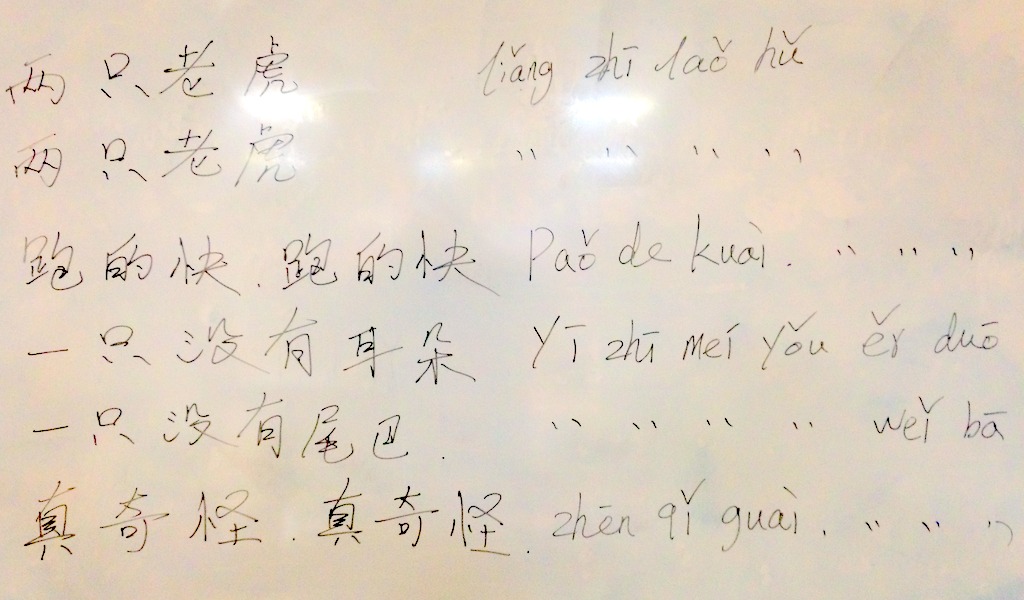 两只老虎 liǎng zhī laǒ hǔ
两只老虎 " " " "
跑的快.跑的快 Paǒ de kuài. " " "
一只没有耳朵 Yī zhī meí yǒu ěr duō
一只没有尾巴. " " " " weǐ bā
真奇怪.真奇怪. zhēn qǐ guài. " " "